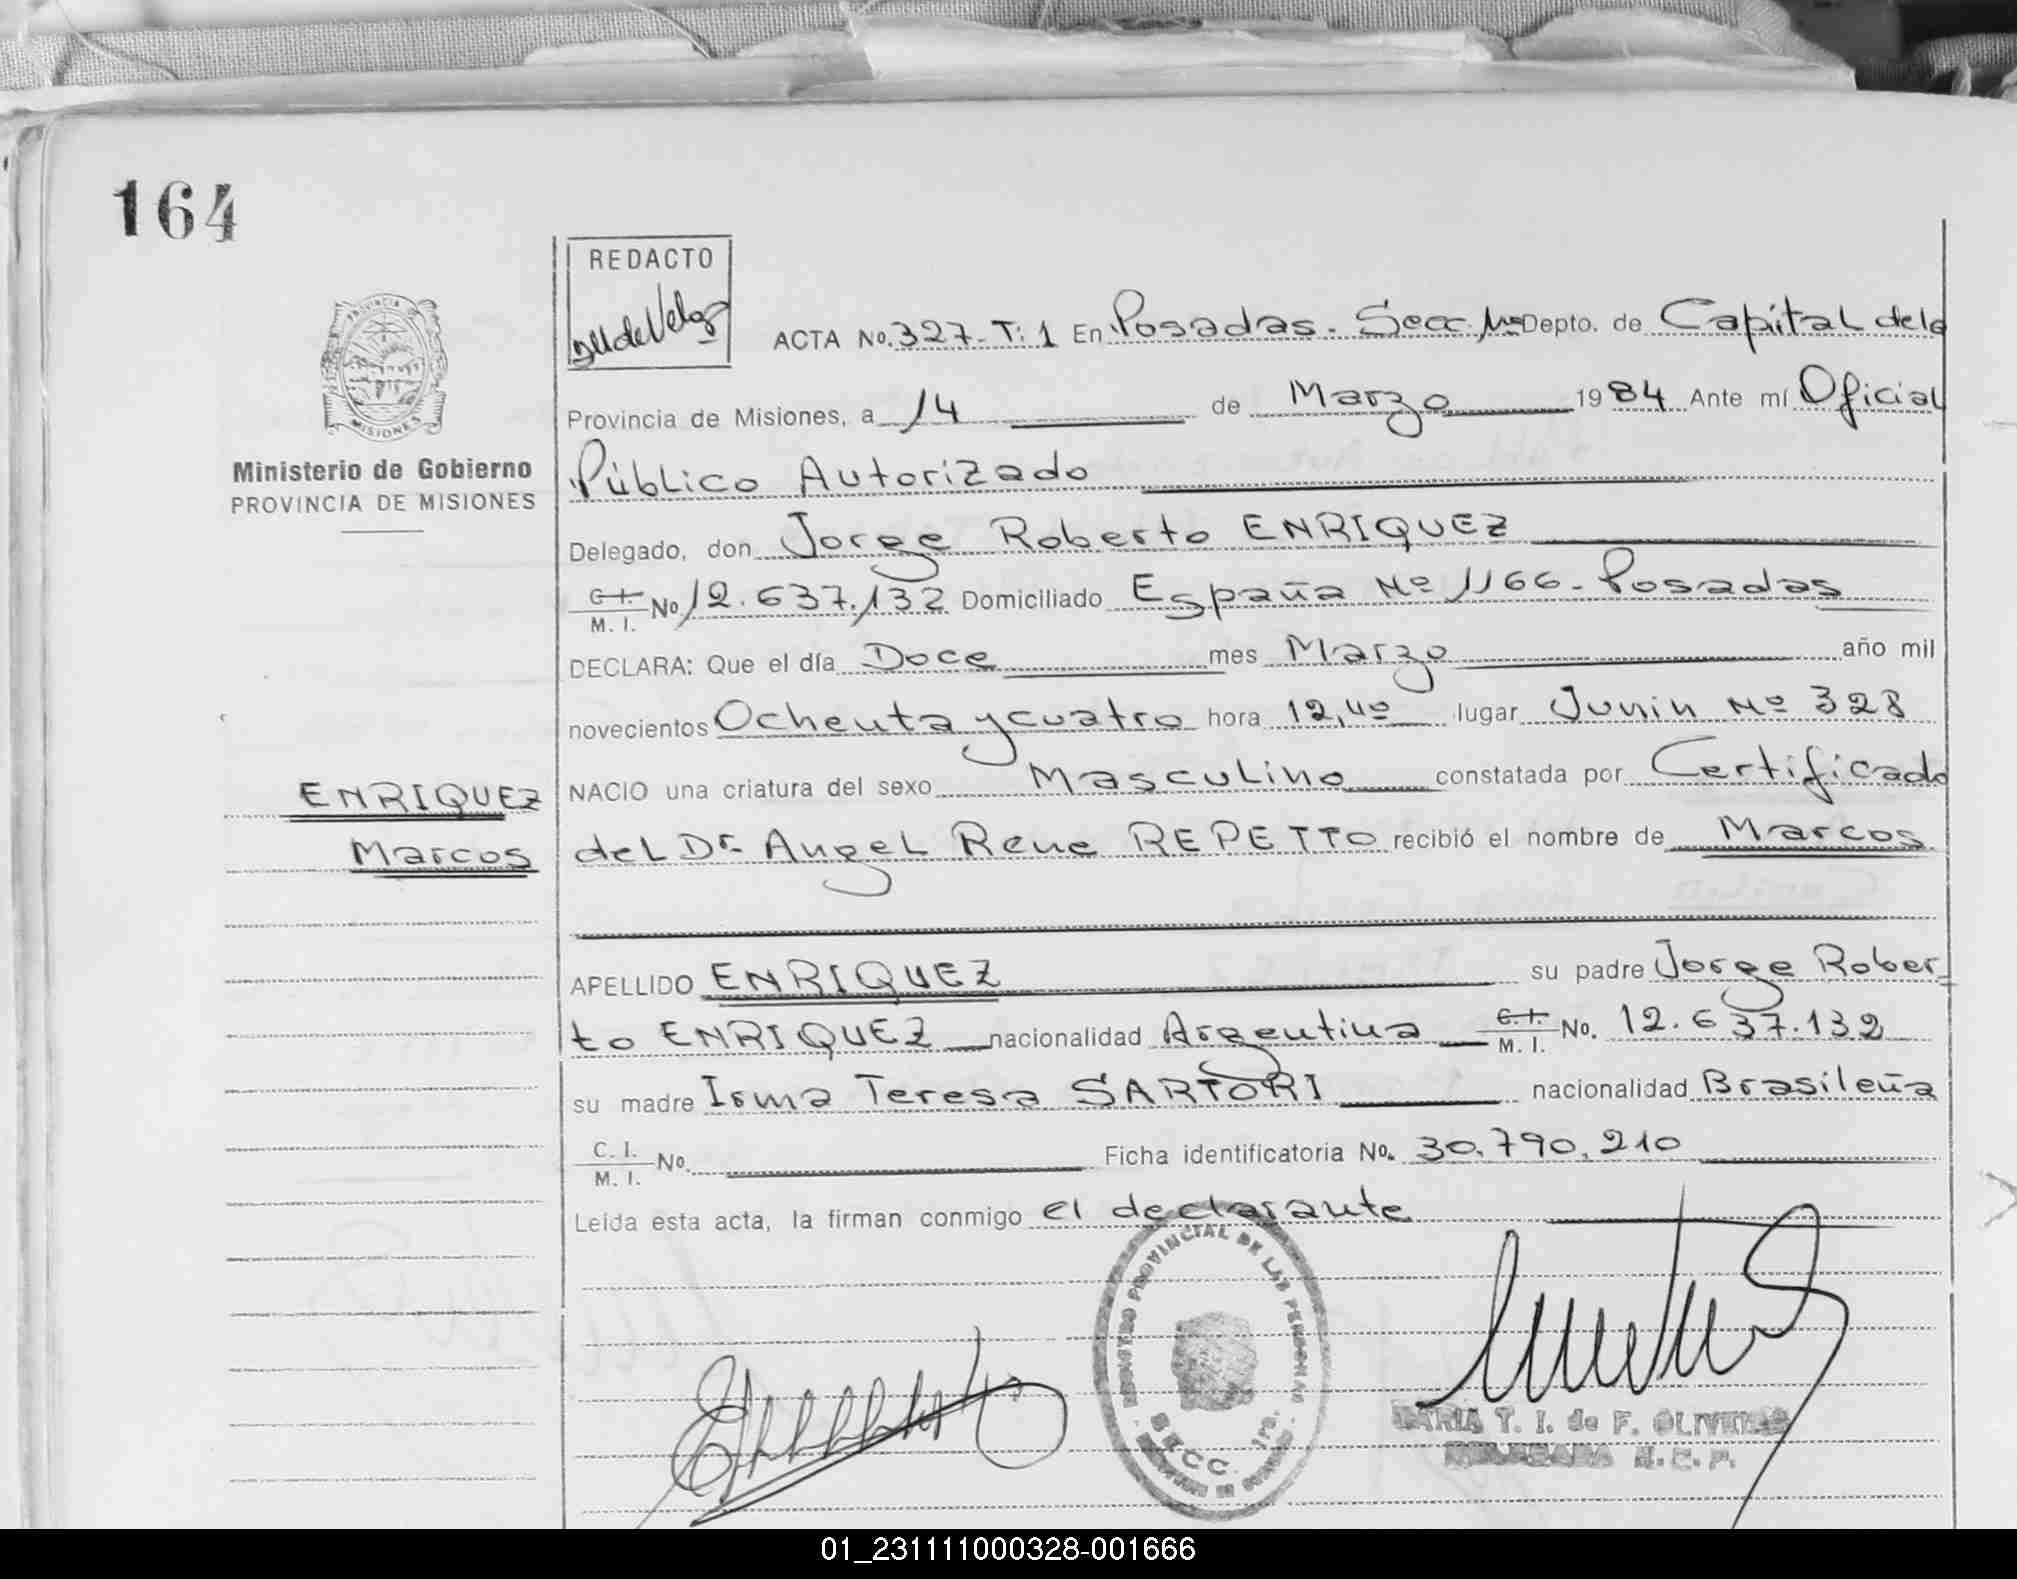 164
REDACTO
PROVINCIA DE
MISIONES
Ministerio de Gobierno
PROVINCIA DE MISIONES
ACTA No. 327-T: 1 En Posadas. Secc. 1ra Depto. de Capital de la
Provincia de Misiones, a 14 de Marzo 1984 Ante mí Oficial
Público Autorizado
Delegado, don Jorge Roberto ENRIQUEZ
C. I. M. I. No. 12.637.132 Domiciliado España Nº 1166 - Posadas
DECLARA: Que el día Doce mes Marzo año mil
novecientos Ochenta y cuatro hora 12,40 lugar Junin Nº 328
NACIO una criatura del sexo Masculino constatada por Certificado
ENRIQUEZ
Marcos
del Dr. Angel Rene REPETTO recibió el nombre de Marcos
APELLIDO ENRIQUEZ su padre Jorge Rober-
to ENRIQUEZ nacionalidad Argentina C. I. M. I. No. 12.637.132
su madre Irma Teresa SARTORI nacionalidad Brasileña
C. I. M. I. No. Ficha identificatoria No. 30.790.210
Leída esta acta, la firman conmigo el declarante
REGISTRO PROVINCIAL DE LAS PERSONAS
SECC. 1ra.
MARIA T. I. de F. OLIVEIRA
DELEGADA R.C.P.
01_231111000328-001666